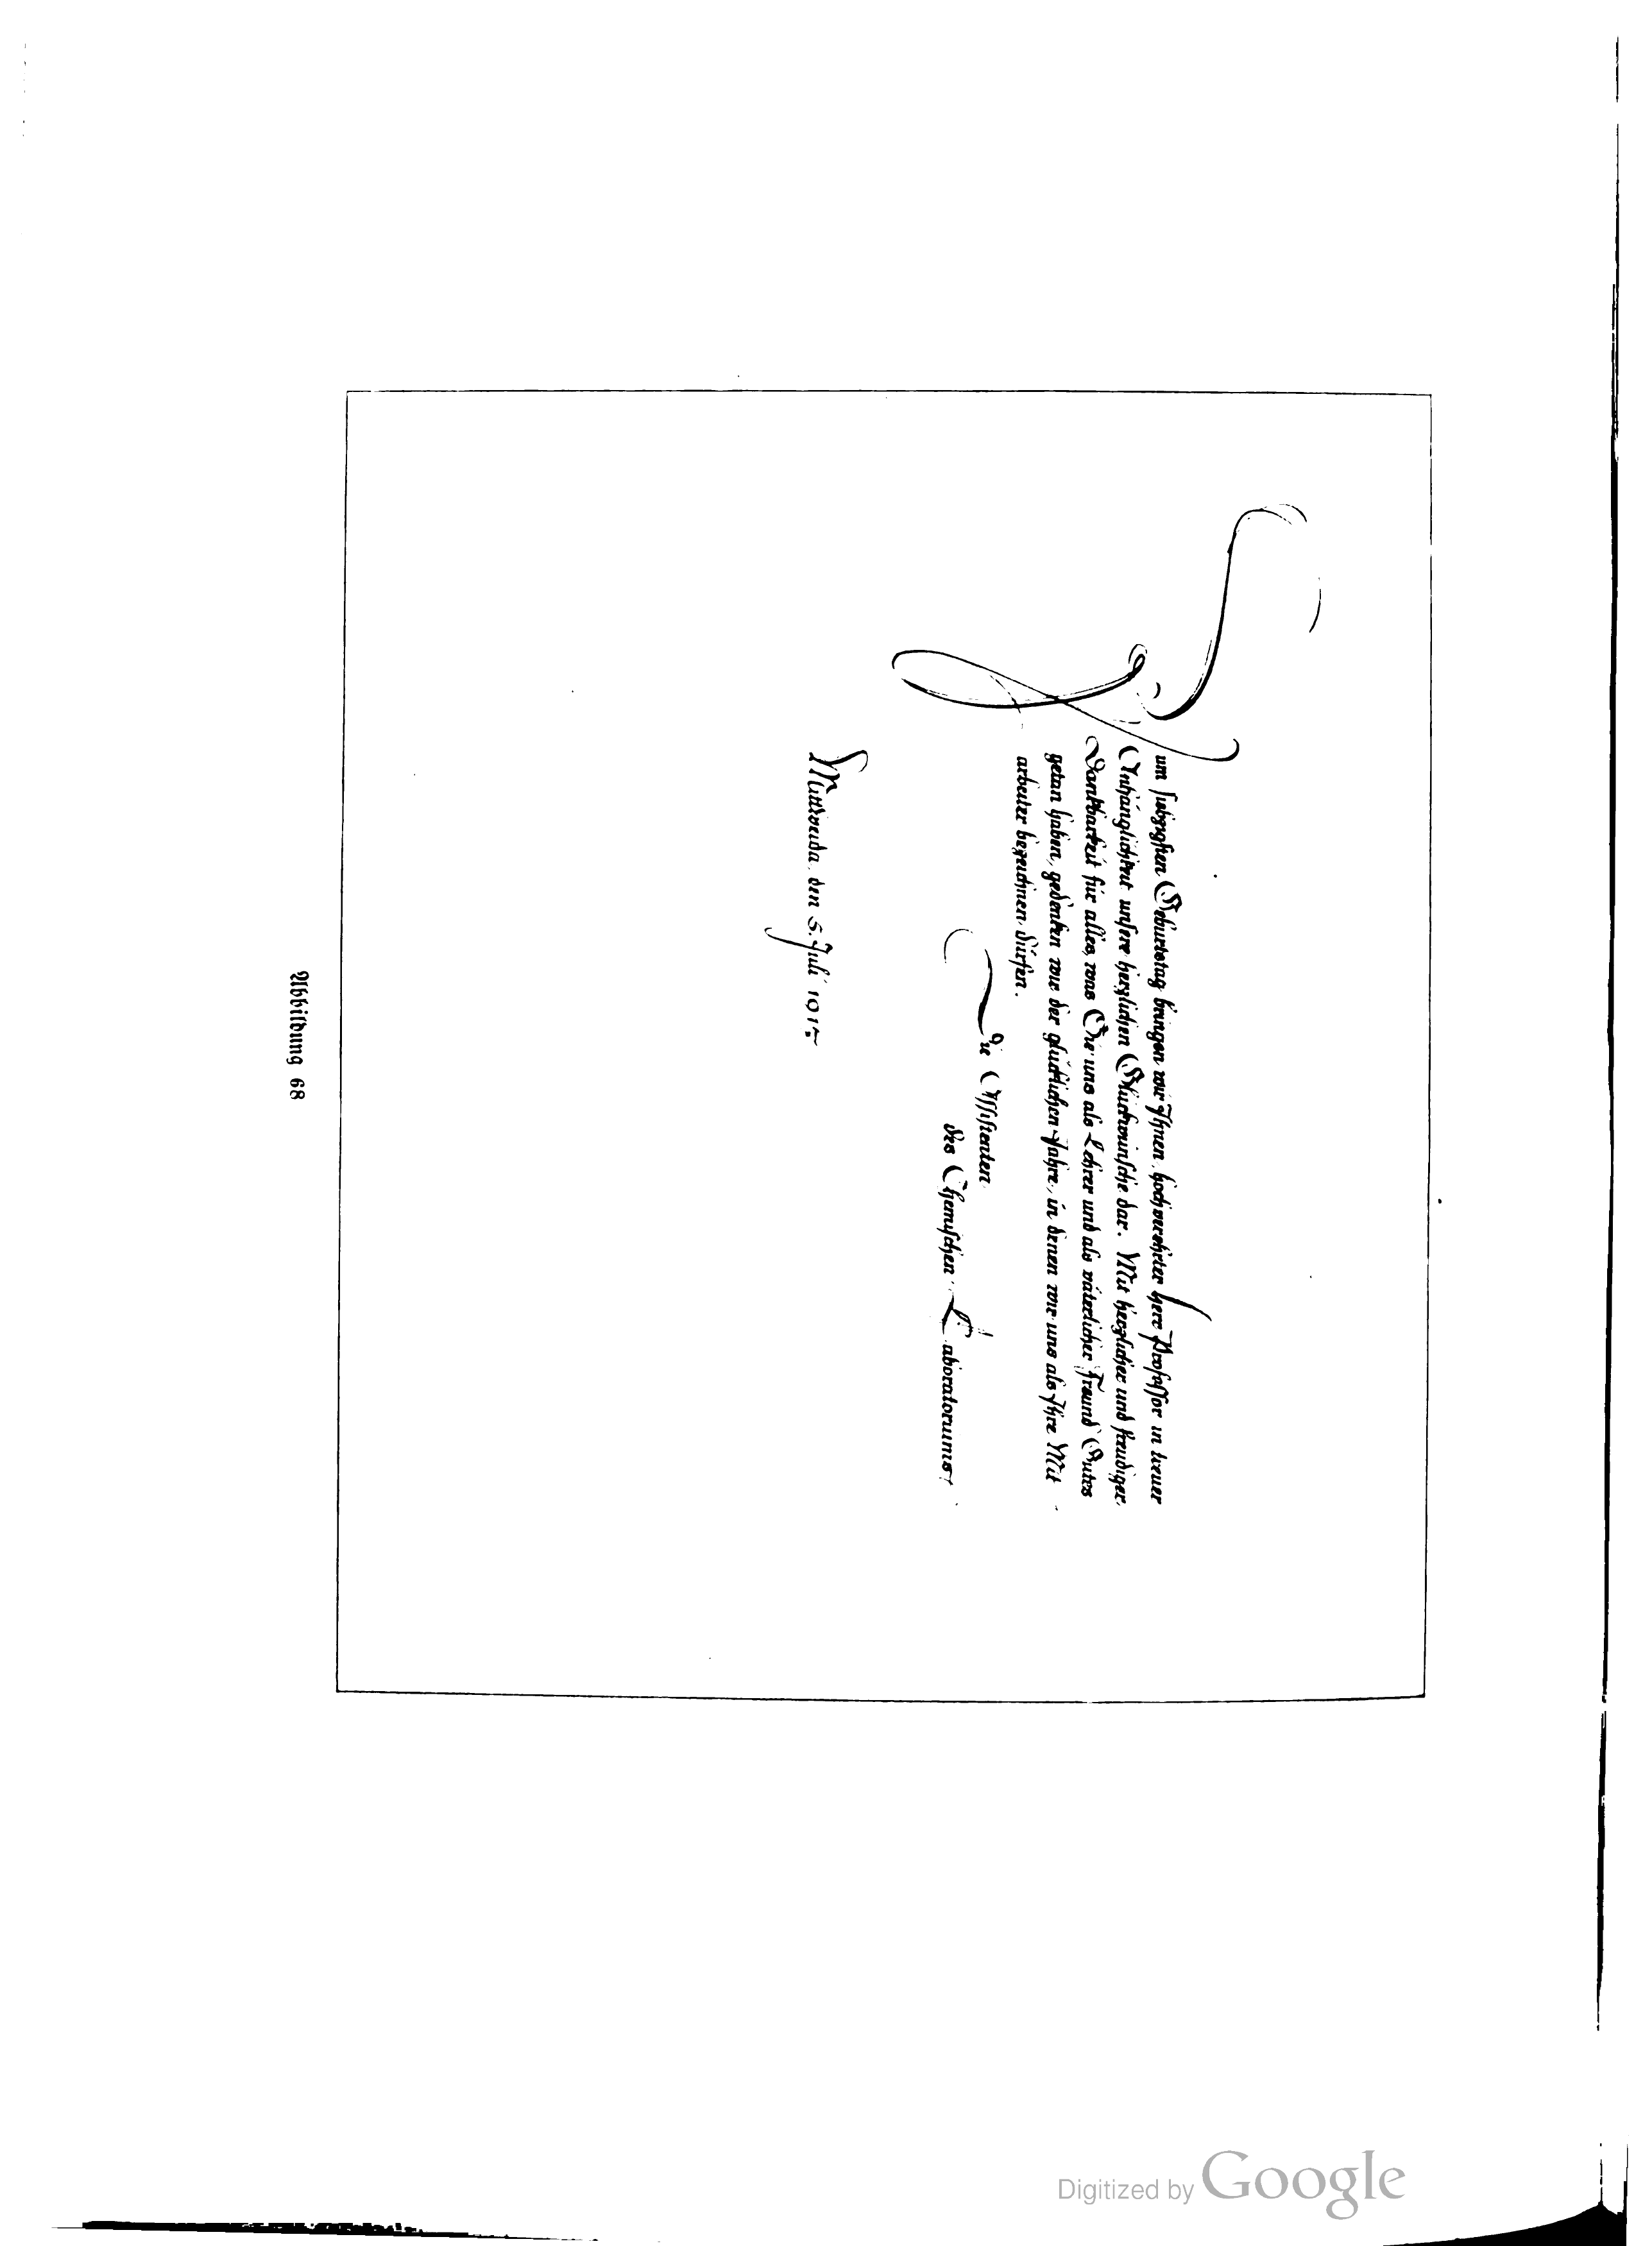 Zum siebzigsten Geburtstag bringen wir Ihnen, hochverehrter Herr Professor in treuer
Anhänglichkeit unsere herzlichen Glückwünsche dar. Mit herzlicher und freudiger
Dankbarkeit für alles, was Sie uns als Lehrer und als väterlicher Freund Gutes
getan haben, gedenken wir der glücklichen Jahre, in denen wir uns als Ihre Mit-
arbeiter bezeichnen dürfen.
Die Assistenten
des Chemischen Laboratoriums
den 5. Juli
Abbildung 68
Digitized by Google